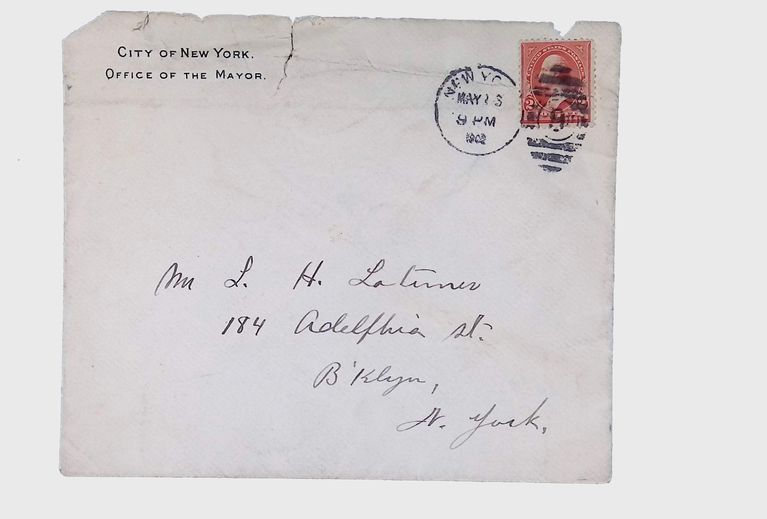 CITY OF NEW YORK.
OFFICE OF THE MAYOR.
NEW YO
MAY
9 PM
1902
2
9
Mr L. H. Latimer
184 Adelphia st.
B'klyn,
N. York.